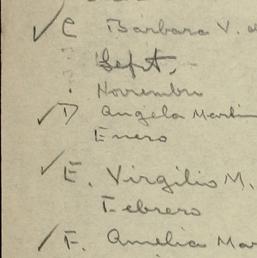 ✓ C Barbara V. d
Sept.
Noviembre
✓ D Angela Martin
Enero
✓ E. Virgilio M.
Febrero
✓ F. Amelia Mar